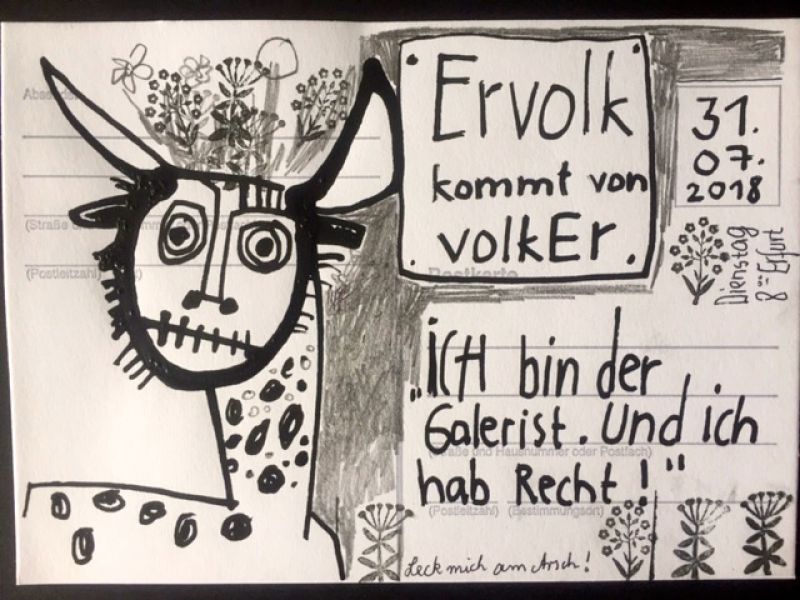 Ervolk
kommt von
volkEr.
31.
07.
2018
Dienstag
8ºº Erfurt
Absender
(Postleitzahl)
Postkarte
"ICH bin der
Galerist. Und ich
(Straße und Hausnummer oder Postfach)
hab Recht!"
(Postleitzahl) (Bestimmungsort)
Leck mich am Arsch!